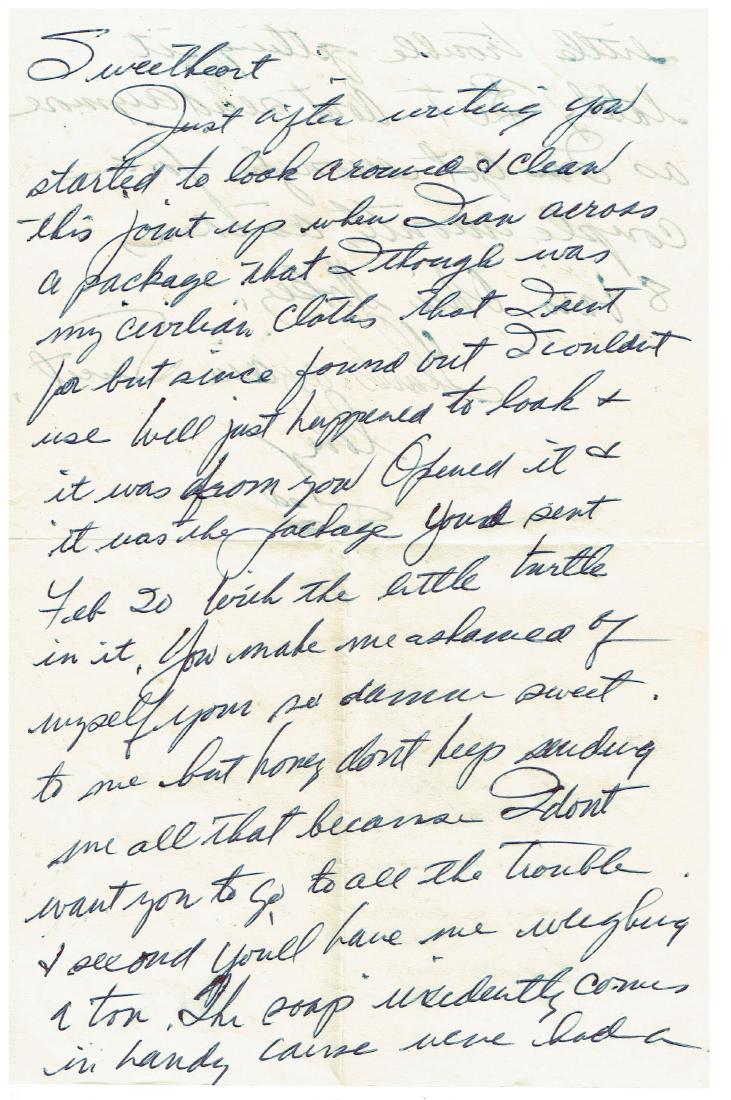 Sweetheart
Just after writing you
started to look around & clean
this joint up when I ran across
a package that I though was
my civilian cloths that I sent
for but since found out I couldnt
use Well just happened to look &
it was from you Opened it &
it was the package you'd sent
Feb 20 with the little turtle
in it. You make me ashamed of
myself your so damn sweet.
to me but honey dont keep sending
me all that because I dont
want you to go to all the trouble.
& second you'll have me weighing
a ton. The soap incidently comes
in handy cause weve had a